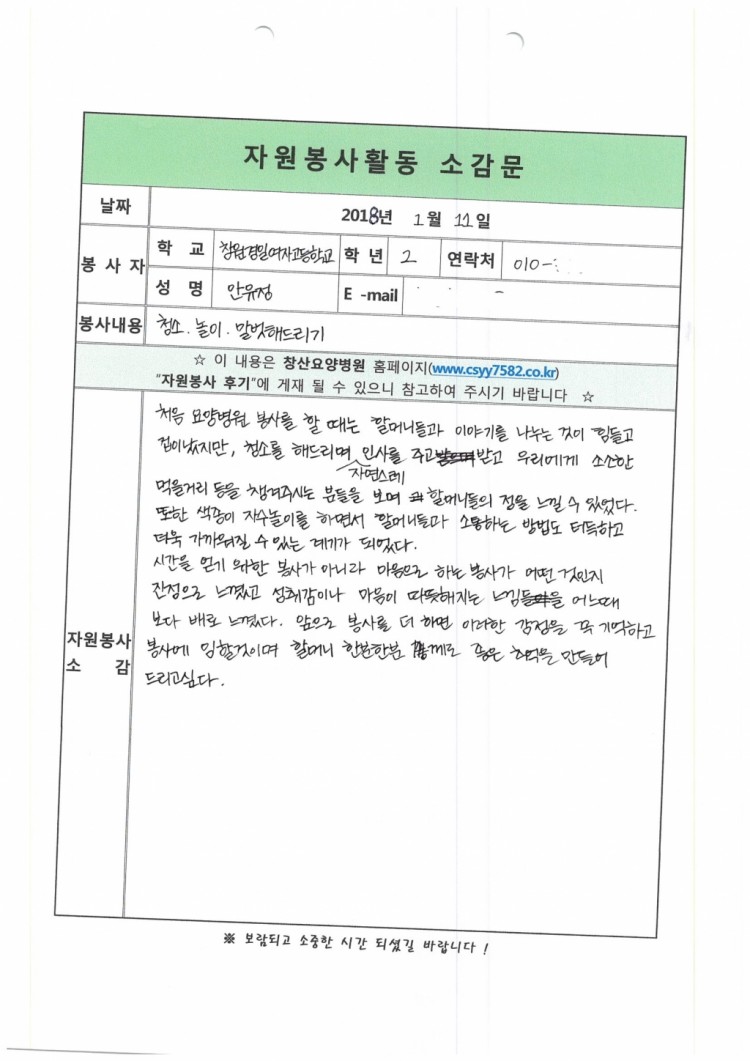 자원봉사활동 소감문
날짜 2018년 1월 11일
봉사자 학교 창원경일여자고등학교 학년 2 연락처 010-
성명 안유정 E-mail
봉사내용 청소. 놀이. 말벗해드리기
☆ 이 내용은 창산요양병원 홈페이지(www.csyy7582.co.kr)
"자원봉사 후기"에 게재 될 수 있으니 참고하여 주시기 바랍니다 ☆
자원봉사 소감
처음 요양병원 봉사를 할 때는 할머니들과 이야기를 나누는 것이 힘들고
겁이났지만, 청소를 해드리며 자연스레 인사를 주고받고 우리에게 소소한
먹을거리 등을 챙겨주시는 분들을 보며 할머니들의 정을 느낄 수 있었다.
또한 색종이 자수놀이를 하면서 할머니들과 소통하는 방법도 터득하고
더욱 가까워질 수 있는 계기가 되었다.
시간을 얻기 위한 봉사가 아니라 마음으로 하는 봉사가 어떤 것인지
진정으로 느꼈고 성취감이나 마음이 따뜻해지는 느낌들을 어느때
보다 배로 느꼈다. 앞으로 봉사를 더 하면 이러한 감정을 꼭 기억하고
봉사에 임할것이며 할머니 한분한분께로 좋은 추억을 만들어
드리고싶다.
※ 보람되고 소중한 시간 되셨길 바랍니다 !